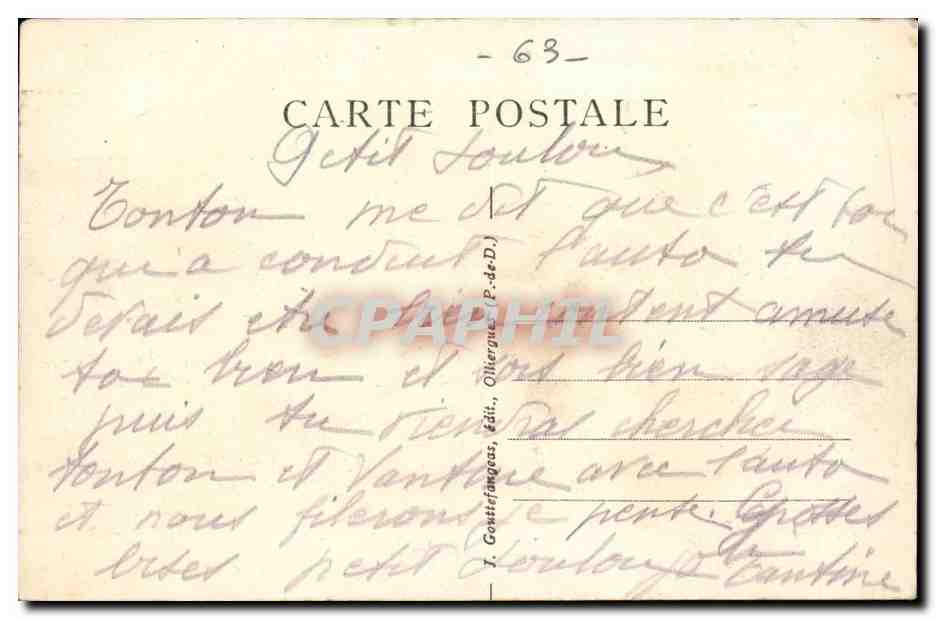 - 63 -
CARTE POSTALE
Petit Loulou
Tonton me dit que c'est toi
qui a conduit l'auto tu
devais être bien content amuse
toi bien et sois bien sage
puis tu viendras chercher
tonton et Tantine avec l'auto
et nous filerons je pense. Grosses
bises petit Loulou
Tantine
J. Gouttefangeas, édit., Olliergues (P.-de-D.)
CPAPHIL